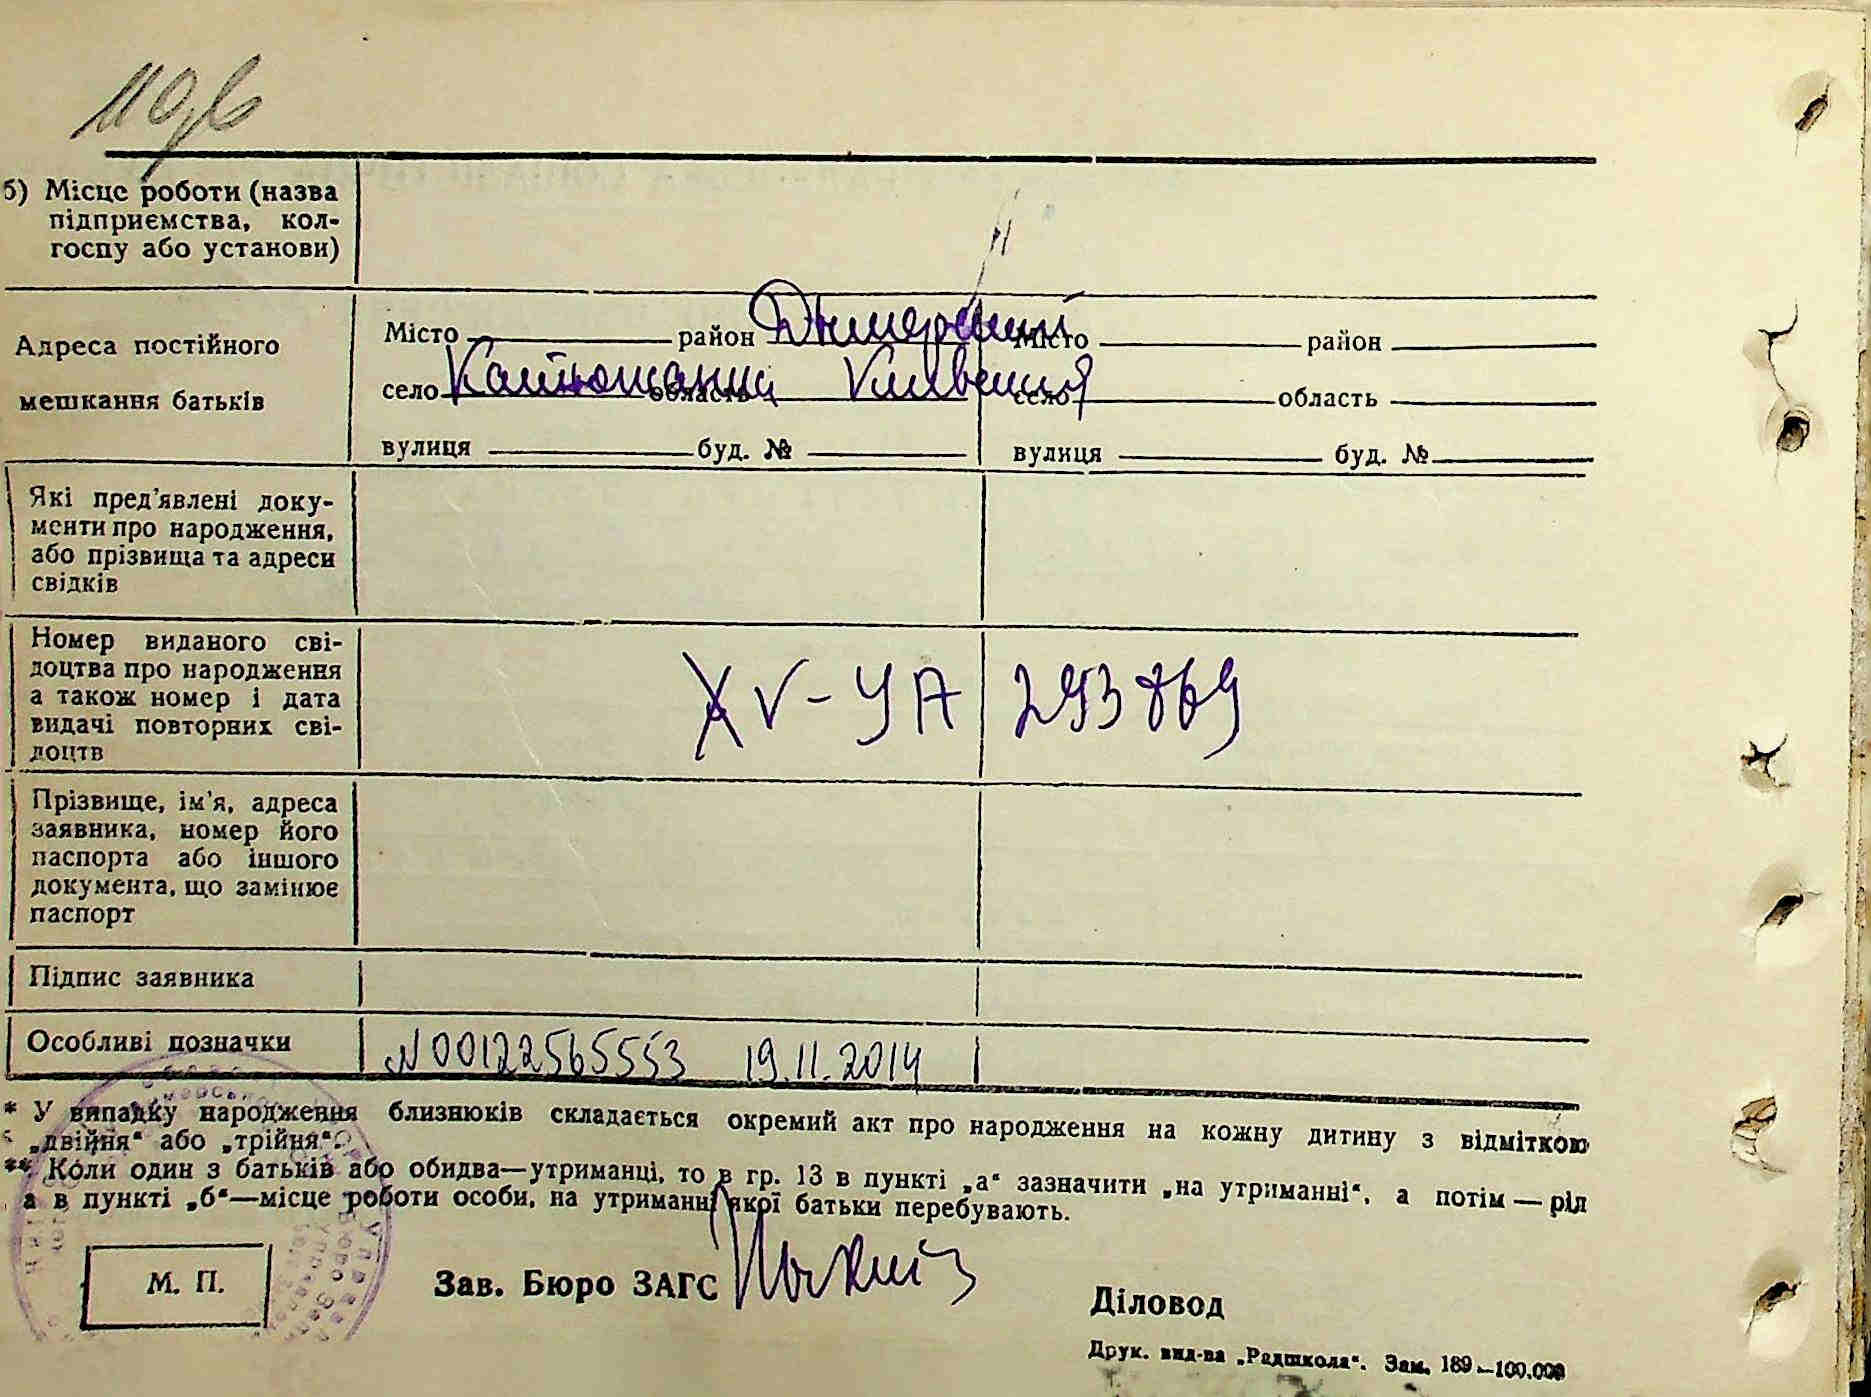 б) Місце роботи (назва
підприємства, кол-
госпу або установи)
Адреса постійного
мешкання батьків
Місто район Дымерский Місто район
село Катюжанка область Киевская село область
вулиця буд. № вулиця буд. №
Які пред'явлені доку-
менти про народження,
або прізвища та адреси
свідків
Номер виданого сві-
доцтва про народження
а також номер і дата
видачі повторних сві-
доцтв
XV-УА 293869
Прізвище, ім'я, адреса
заявника, номер його
паспорта або іншого
документа, що замінює
паспорт
Підпис заявника
Особливі позначки
N 00122565553 19.11.2014
* У випадку народження близнюків складається окремий акт про народження на кожну дитину з відміткою
„двійня“ або „трійня“.
** Коли один з батьків або обидва—утриманці, то в гр. 13 в пункті „а“ зазначити „на утриманні“, а потім — рід
а в пункті „б“—місце роботи особи, на утриманні якої батьки перебувають.
М. П.
Зав. Бюро ЗАГС
Діловод
Друк. вид-ва „Радшкола“. Зам. 189—100.000